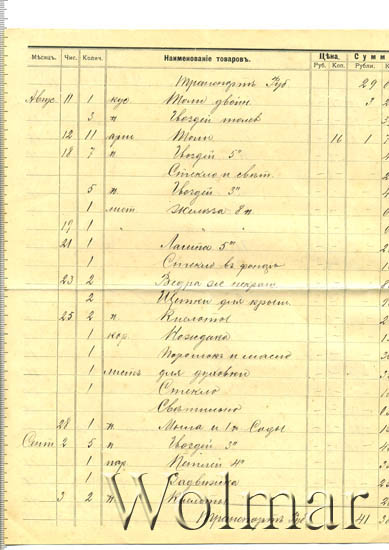 Мѣсяцъ. Чис. Колич. Наименованіе товаровъ. Цѣна. Сумм
Руб. Коп. Рубли.
Транспортъ Руб 29
Авгус 11 1 кус Толи двойн. 3
3 п Гвоздей толев
12 11 арш Толи 16 1
18 7 п Гвоздей 5"
Стекло и свѣт.
5 п Гвоздей 3"
1 лист Желѣза 8 п.
19 1 " "
21 1 5"
1 Стекло въ фонарь
23 2 Ведра
2 Щетки для крыш.
25 2 п Кислоты
1 кор.
1 Порошокъ и масло
1 листъ для духовки
1 Стекло
28 1 п. Мыла и 1п Соды
Сент 2 5 п Гвоздей 3"
1 пар. Петлей 4"
1 Задвижка
3 2 п Кислоты
Транспортъ Руб 41
Wolmar